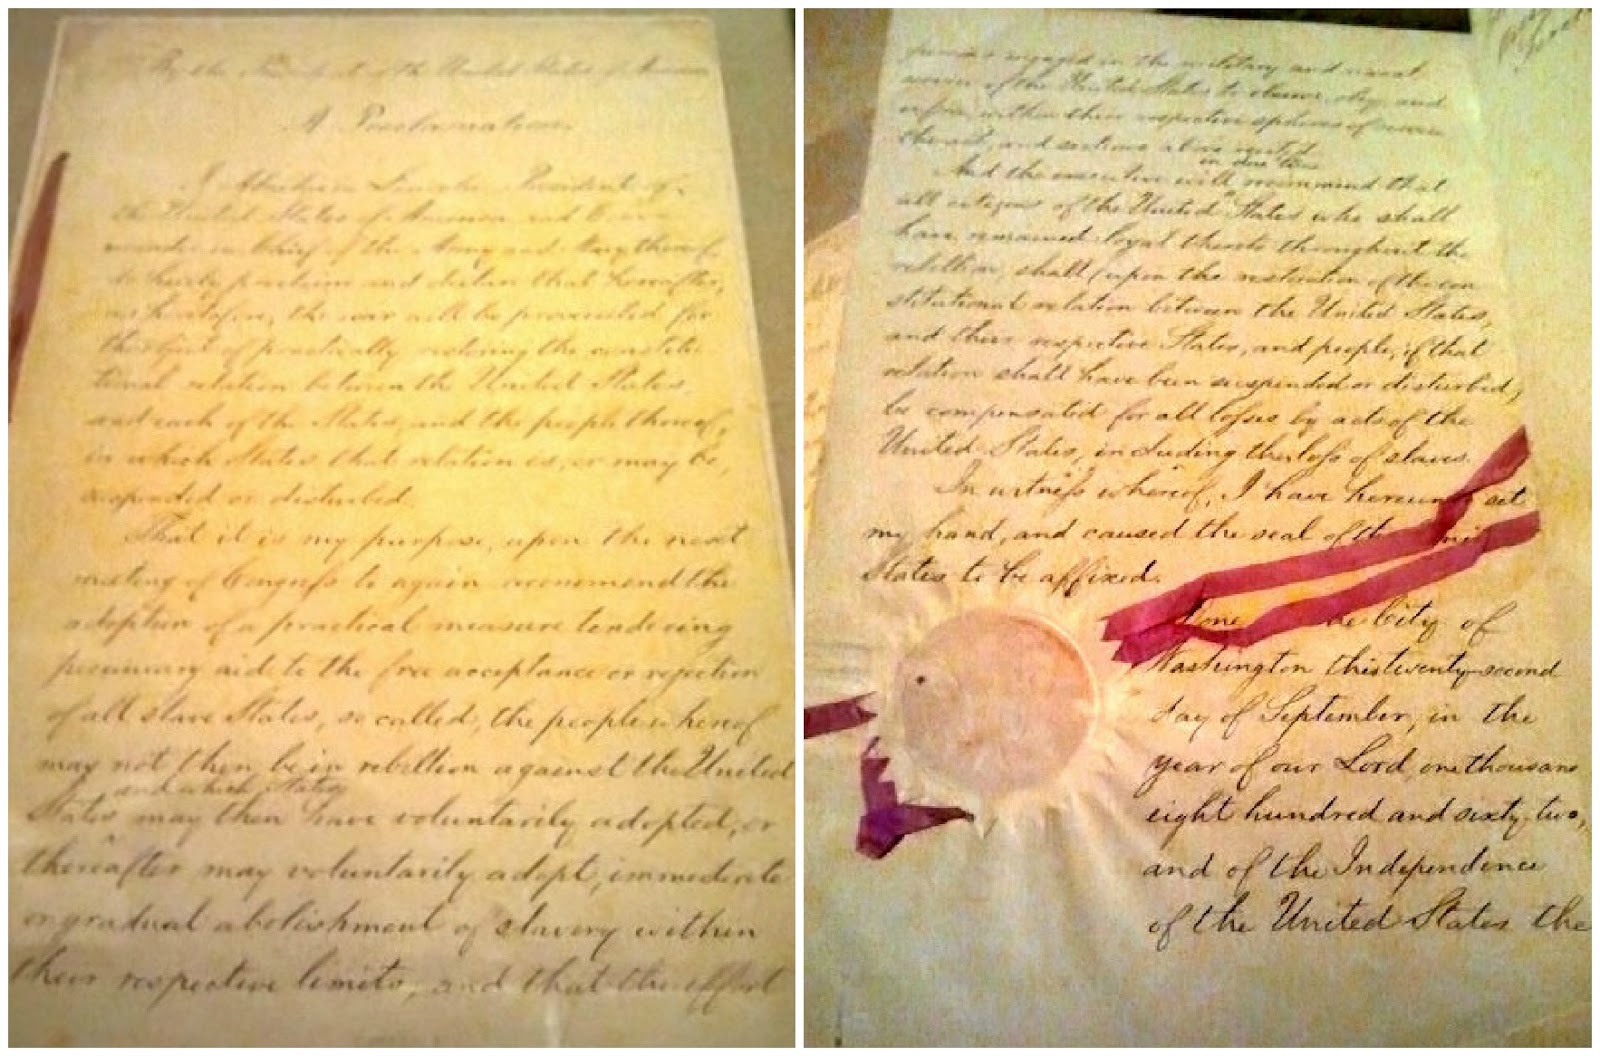 By the President of the United States of America
A Proclamation.
I Abraham Lincoln, President of
the United States of America, and Com-
mander-in-chief of the Army and Navy thereof,
do hereby proclaim and declare that hereafter,
as heretofore, the war will be prosecuted for
the object of practically restoring the constitu-
tional relation between the United States,
and each of the States, and the people thereof,
in which States that relation is, or may be
suspended or disturbed.
That it is my purpose, upon the next
meeting of Congress to again recommend the
adoption of a practical measure tendering
pecuniary aid to the free acceptance or rejection
of all slave States, so called, the people whereof
may not then be in rebellion against the United
and which States
States may then have voluntarily adopted, or
thereafter may voluntarily adopt, immediate
or gradual abolishment of slavery within
their respective limits; and that the effort
persons engaged in the military and naval
service of the United States to observe, obey, and
enforce, within their respective spheres of service
the act, and sections above recited.
in due time
And the executive will recommend that
all citizens of the United States who shall
have remained loyal thereto throughout the
rebellion, shall (upon the restoration of the con
stitutional relation between the United States,
and their respective States, and people, if that
relation shall have been suspended or disturbed)
be compensated for all losses by acts of the
United States, including the loss of slaves.
In witness whereof, I have hereunto set
my hand, and caused the seal of the
States to be affixed.
Done the City of
Washington this twenty-second
day of September, in the
year of our Lord, one thousand
eight hundred and sixty-two,
and of the Independence
of the United States the